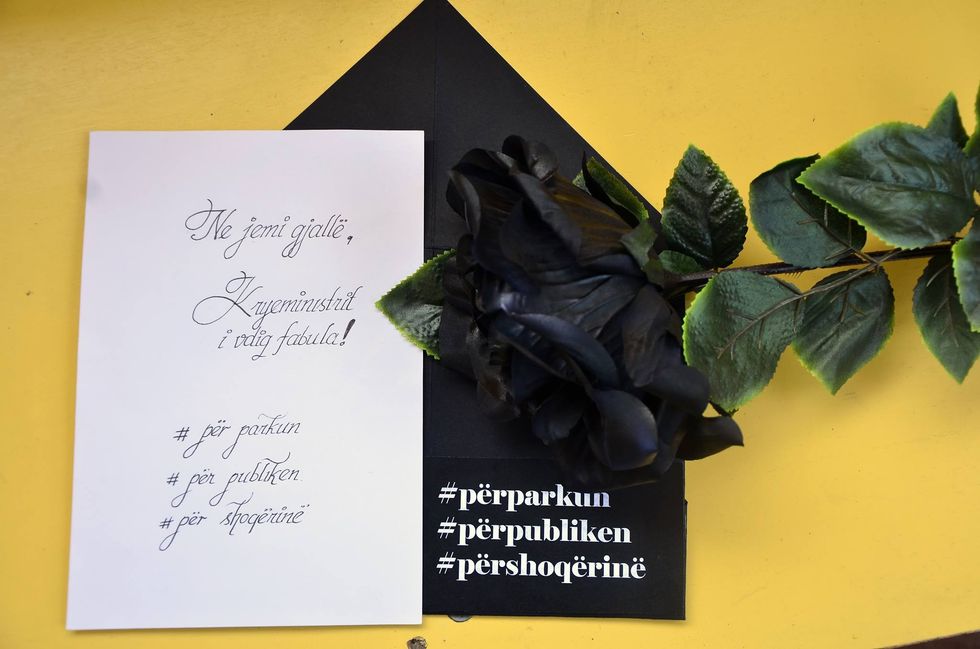 Ne jemi gjallë,
Kryeministrit
i vdiq fabula!
# për parkun
# për publiken
# për shoqërinë
#përparkun
#përpubliken
#përshoqërinë